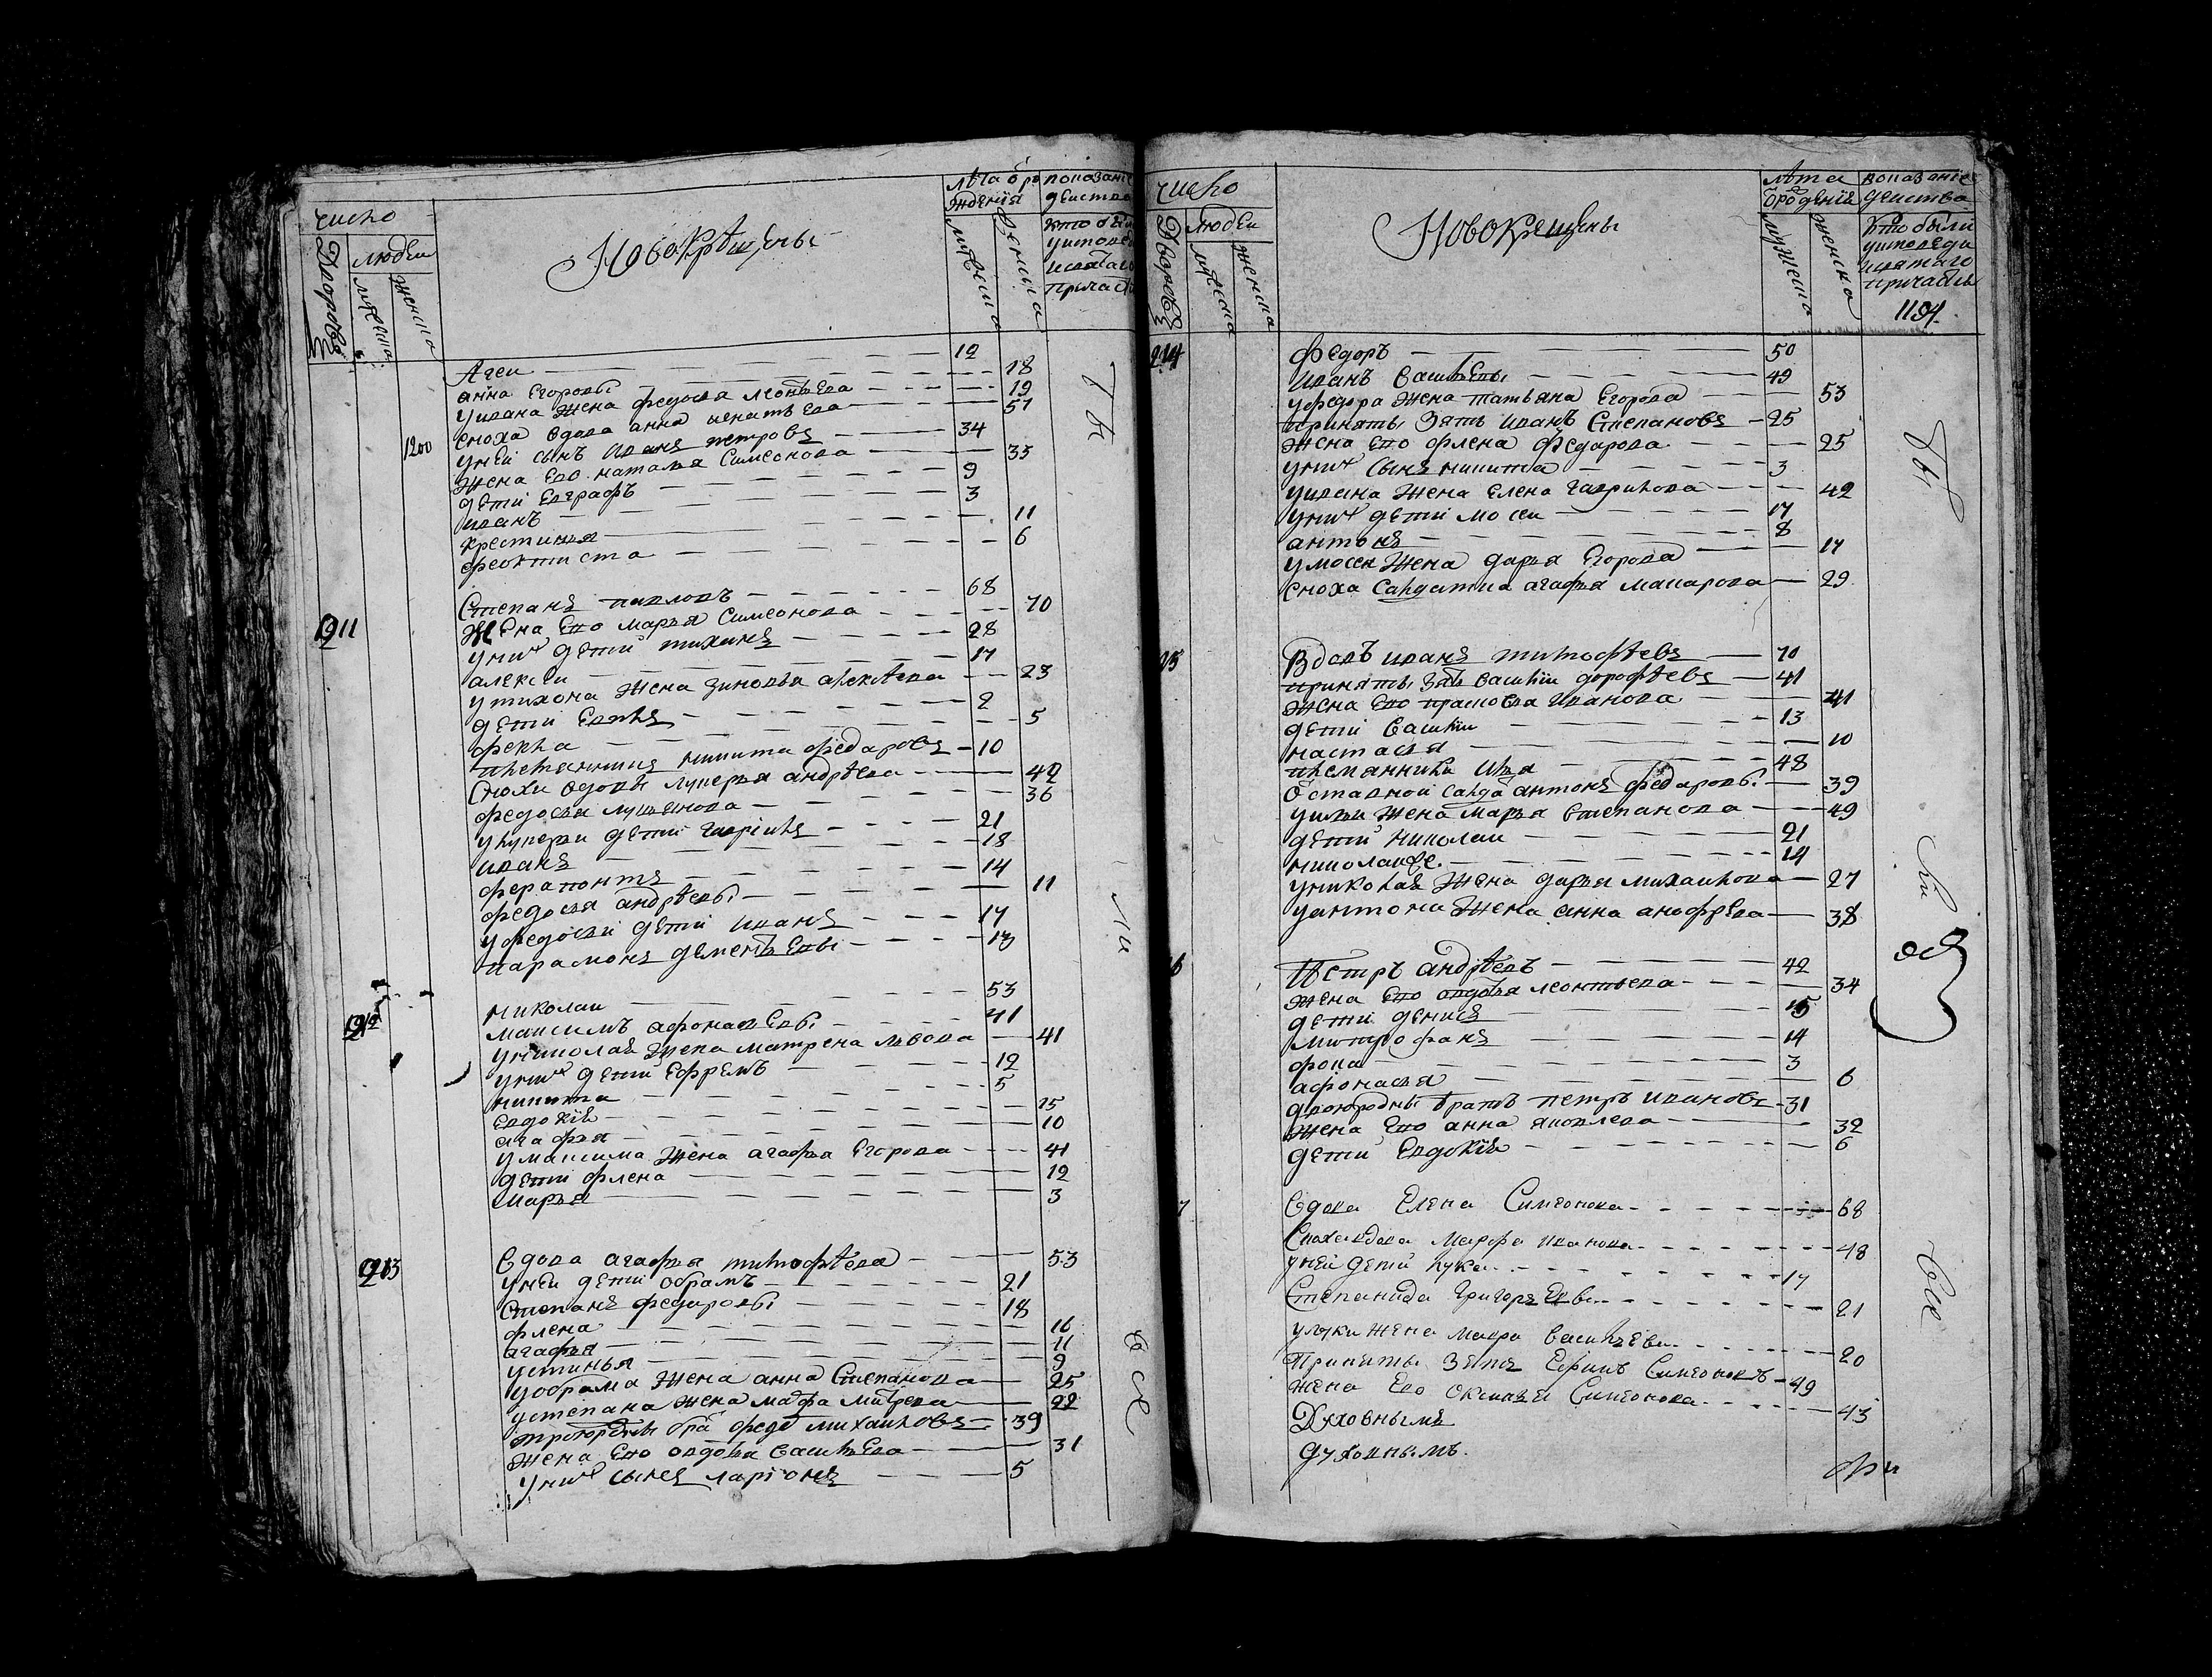 число
Дворовъ
людеи
мужеска
женска
Новокрѣщены
лѣта о ро
ждениi
мужеска
женска
показанiе
деиства
кто были
уисповеди
исвятаго
причастiя
Агеи 12
анна Егоровы 18
уивана жена федосья леонтьева 19
сноха вдова анна игнатьева 57
1200 унеи сынъ иванъ петровъ 34
жена Ево наталья Симеонова 35
дети Евграфъ 9
иванъ 3
крестинья 11
феоктиста 6
911 Степанъ павловъ 68
жена Ево марья Симеонова 70
уних дети тихонъ 28
алексеи 17
утихона жена зиновья алексѣева 23
дети Евпъ 2
фекла 5
племянникъ никита федаровъ 10
снохи вдовы лукерья андрѣева 42
федосья лукьянова 36
улукерьи дети гаврiилъ 21
иванъ 18
ферапонтъ 14
федосья андрѣевы 11
уфедосьи дети иванъ 17
парамонъ дементьевы 13
912 николаи 53
максимъ афонасьевы 41
униколая жена матрена львова 41
уних дети Ефремъ 12
никита 5
Евдокия 15
агафья 10
умаксима жена агафья Егорова 41
дети флена 12
марья 3
913 вдова агафья тимофѣева 53
унеи дети обрамъ 21
степанъ федаровы 18
флена 16
агафья 11
устинья 9
уобрама жена анна Степанова 25
устепана жена мафа митрева 22
троюродныи бра феде михаиловъ 39
жена Ево овдотья васильева 31
уних сынъ ларiонъ 5
число
Дворовъ
людеи
мужеска
женска
Новокрещены
лѣта
ѡрождения
мужеска
женска
показание
деиства
кто были
уисповеди
исвятаго
причастья
1194
914 федоръ 50
иванъ васильевы 49
уфедора жена татьяна Егорова 53
принятыи зять иванъ Степановъ 25
жена Ево флена федарова 25
уних сынъ никита 3
уивана жена Елена гаврилова 42
уних дети мосеи 17
антонъ 8
умосея жена дарья Егорова 17
сноха салдатка агафья макарова 29
915 вдовъ иванъ тимофѣевъ 70
принятыи зять василiи дорофѣевъ 41
жена Ево прасковья иванова 41
дети василiи 13
настасья 10
племянники илья 48
оставнои салда антонъ федаровы 39
уильи жена марья степанова 49
дети николаи 21
николаиже 14
униколая жена дарья михаилова 27
уантона жена анна анофрева 38
6 Петръ андрѣевъ 42
жена Ево овдотья леонтьева 34
дети денисъ 15
митрофанъ 14
фока 3
афонасья 6
двоюродныи братъ петръ ивановъ 31
жена Ево анна яковлева 32
дети Евдокия 6
7 Вдова Елена Симеонова 68
Сноха вдова Марфа иванова 48
унеи дети лука 17
Степанида Григорьевы 21
улуки жена мавра васильева 20
Принятыи зять Ефимъ Симеоновъ 49
жена Ево Оксинья Симеонова 43
Духовнымъ
духовнымъ